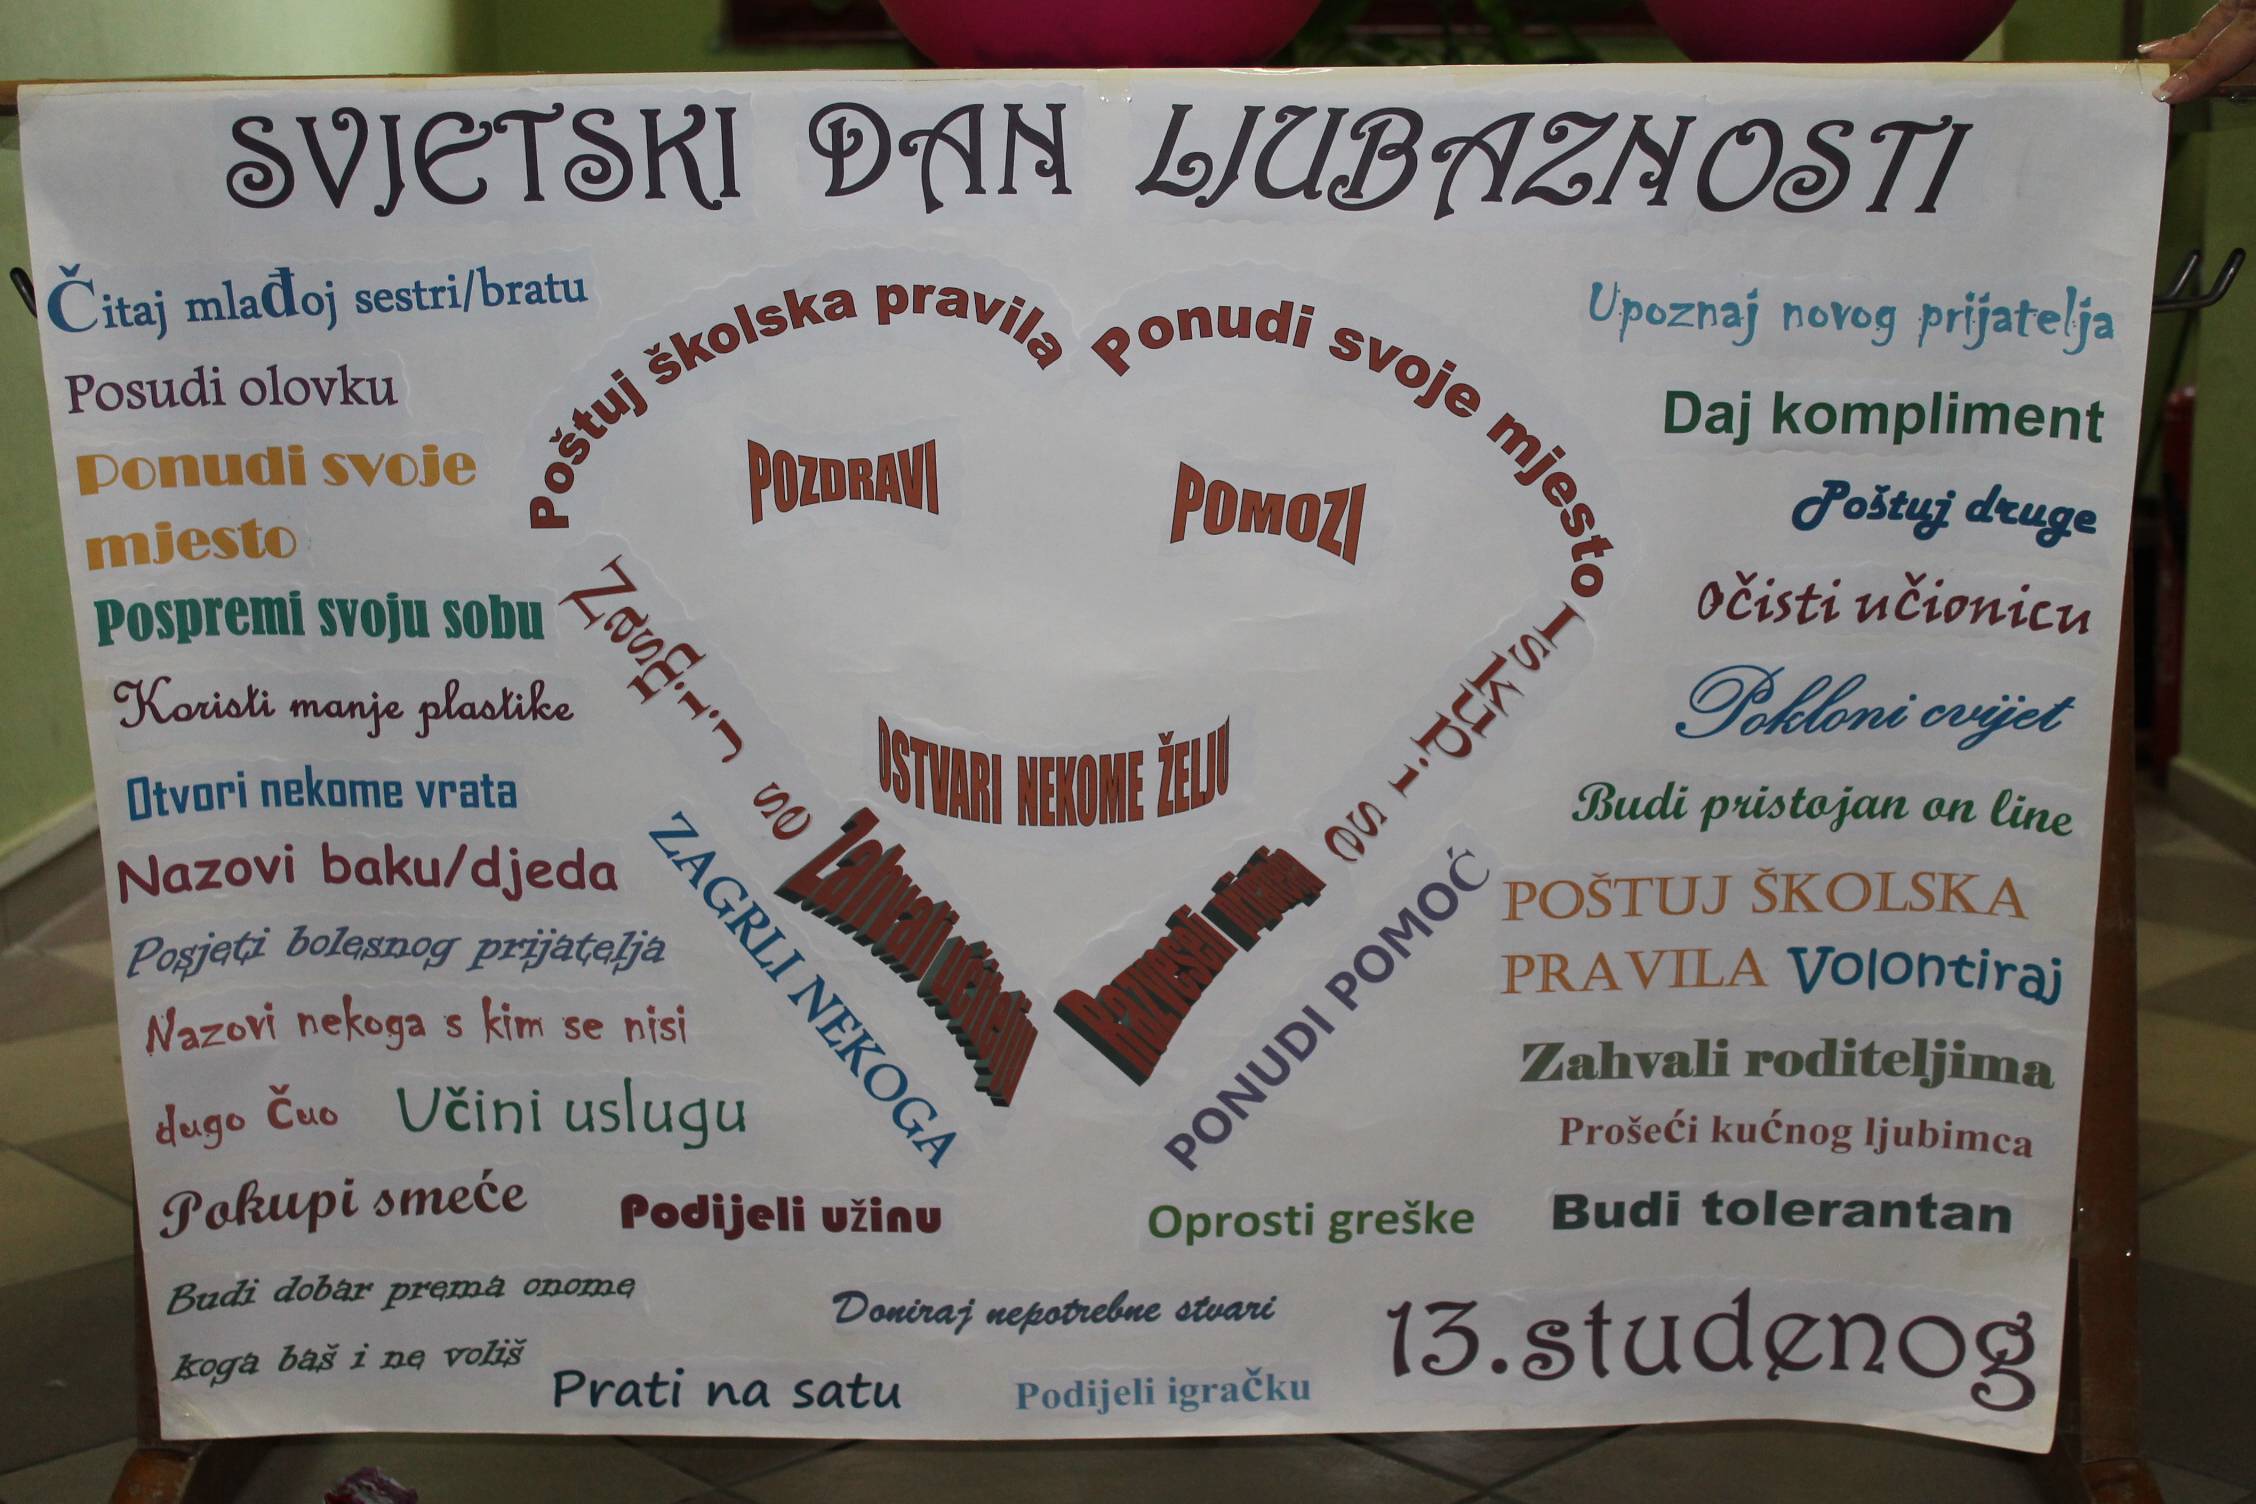 SVJETSKI DAN LJUBAZNOSTI
Čitaj mlađoj sestri/bratu
Posudi olovku
Ponudi svoje
mjesto
Pospremi svoju sobu
Koristi manje plastike
Otvori nekome vrata
Nazovi baku/djeda
Posjeti bolesnog prijatelja
Nazovi nekoga s kim se nisi
dugo čuo
Učini uslugu
Pokupi smeće
Budi dobar prema onome
koga baš i ne voliš
Poštuj školska pravila
Ponudi svoje mjesto
POZDRAVI
POMOZI
OSTVARI NEKOME ŽELJU
Nasmij se
Iskupi se
Zahvali učitelju
Razveseli prijatelja
ZAGRLI NEKOGA
PONUDI POMOĆ
Podijeli užinu
Oprosti greške
Doniraj nepotrebne stvari
Prati na satu
Podijeli igračku
Upoznaj novog prijatelja
Daj kompliment
Poštuj druge
Očisti učionicu
Pokloni cvijet
Budi pristojan on line
POŠTUJ ŠKOLSKA
PRAVILA
Volontiraj
Zahvali roditeljima
Prošeći kućnog ljubimca
Budi tolerantan
13.studenog